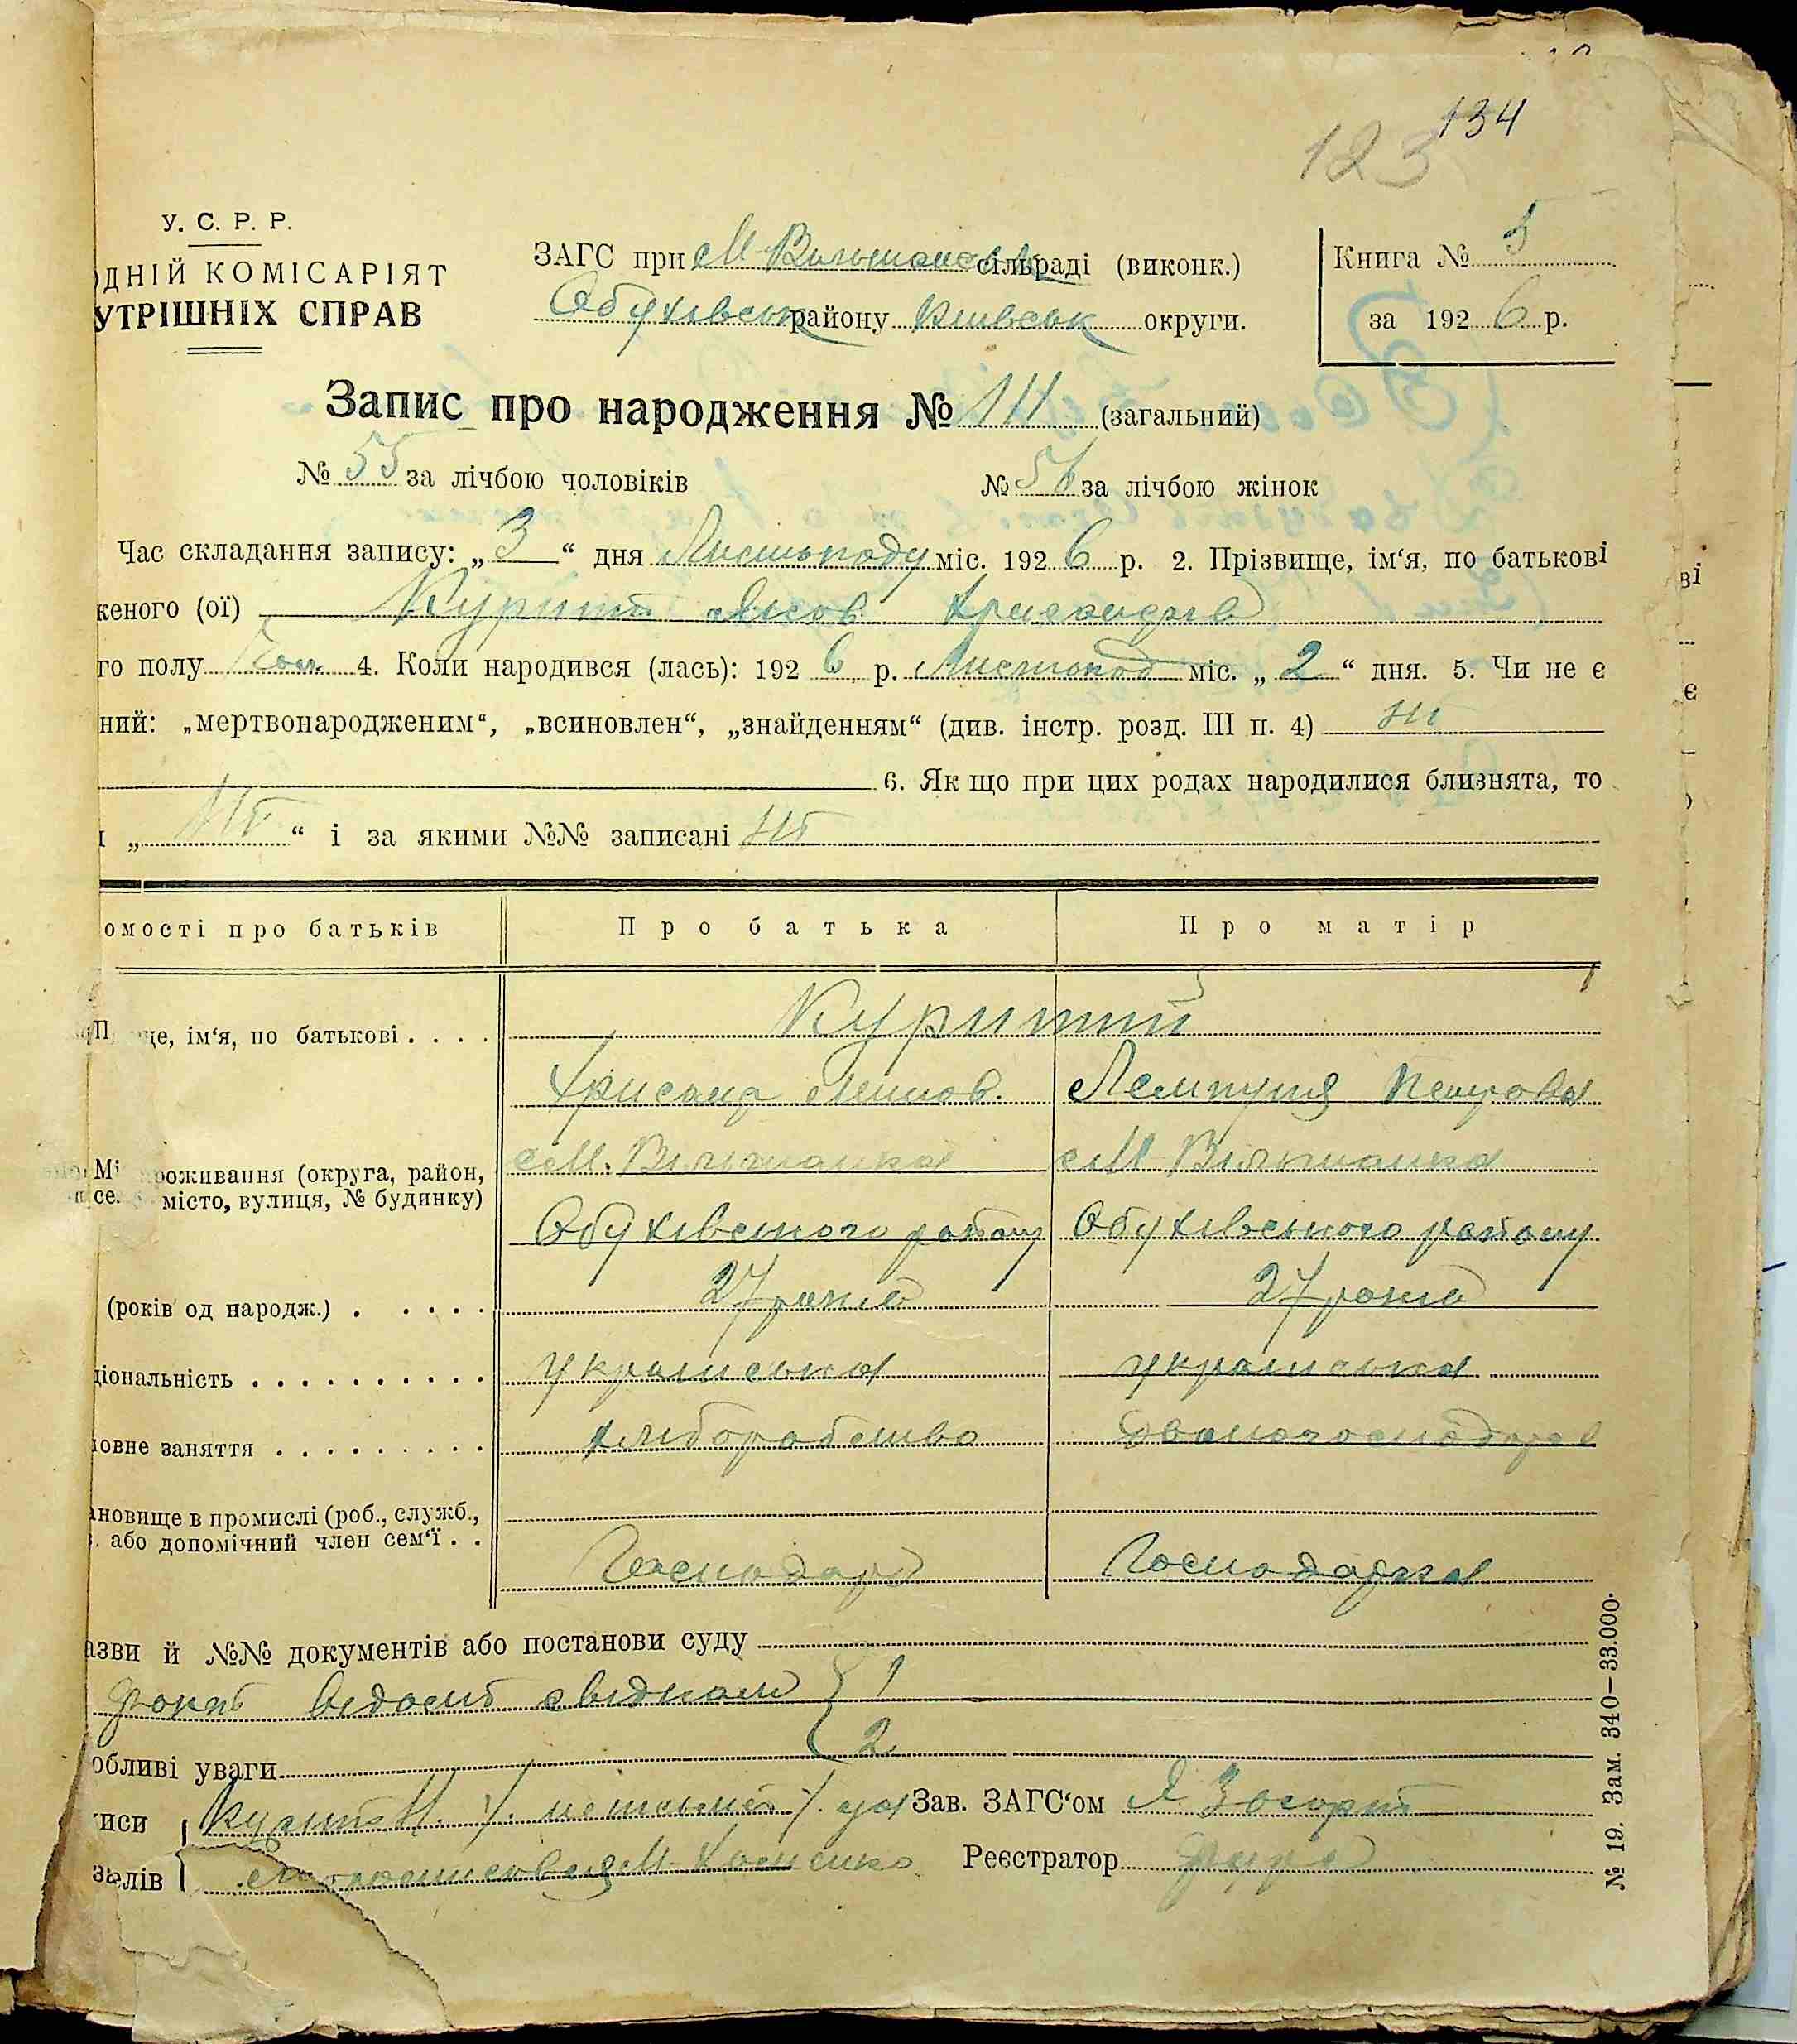 134
123
У. С. Р. Р.
ОДНІЙ КОМІСАРІЯТ
УТРІШНІХ СПРАВ
ЗАГС при М-Вільшанській сільраді (виконк.)
Обухівськ району Київськ округи.
Книга № 5
за 1926 р.
Запис про народження № 111 (загальний)
№ 55 за лічбою чоловіків № 56 за лічбою жінок
Час складання запису: „3“ дня Листопаду міс. 1926 р. 2. Прізвище, ім‘я, по батькові
женого (ої) Яков Хрисандів
го полу Чол. 4. Коли народився (лась): 1926 р. Листопад міс. „2“ дня. 5. Чи не є
ний: „мертвонародженим“, „всиновлен“, „знайденням“ (див. інстр. розд. III п. 4) ні
6. Як що при цих родах народилися близнята, то
„ ні “ і за якими №№ записані ні
омості про батьків Про батька Про матір
Куритий
це, ім‘я, по батькові
Хрисанд Петрова
роживання (округа, район, М. Вільшанка М Вільшанка
місто, вулиця, № будинку)
Обухівського району Обухівського району
(років од народж.) 27 років 27 років
ціональність українська українська
ловне заняття хліборобство
ановище в промислі (роб., служб.,
або допомічний член сем‘ї
Господар Господарка
азви й №№ документів або постанови суду
1
2
обливі уваги
иси Зав. ЗАГС‘ом
лів Реєстратор
№ 19. Зам. 340—33.000.